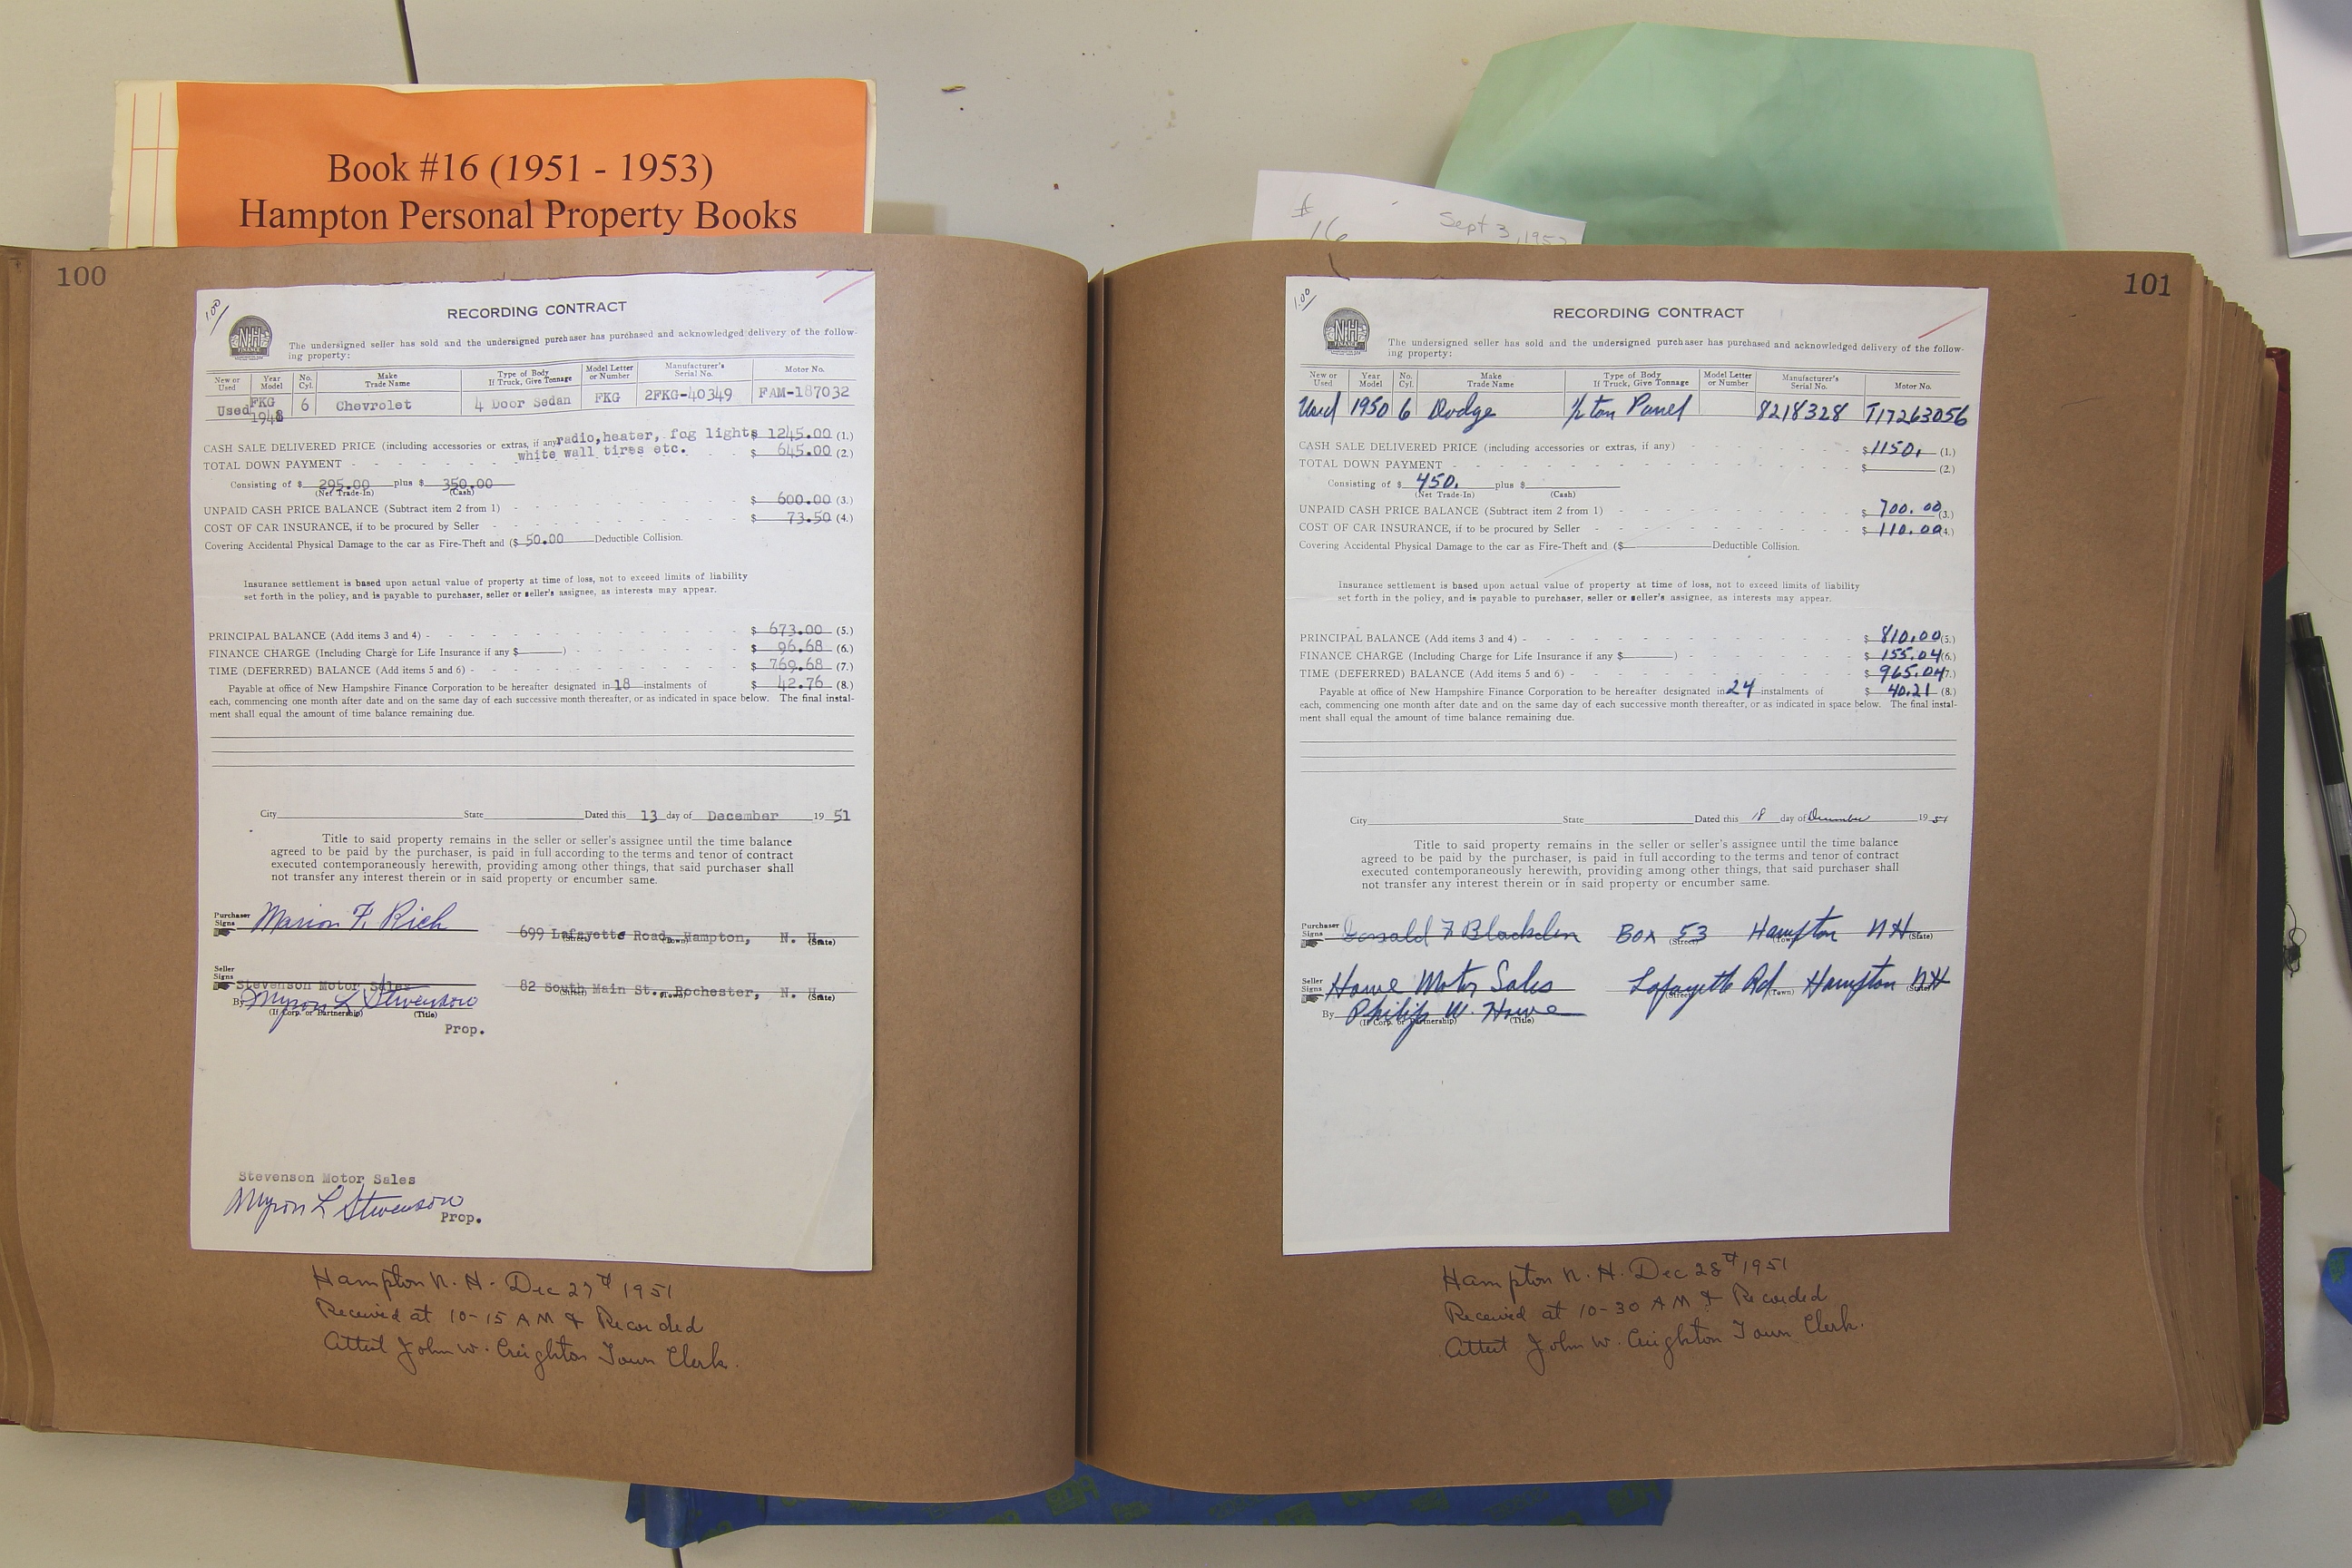 Book #16 (1951 - 1953)
Hampton Personal Property Books
#
16
Sept 3, 195
100
1.00
RECORDING CONTRACT
NH
FINANCE
The undersigned seller has sold and the undersigned purchaser has purchased and acknowledged delivery of the follow-
ing property:
New or Used Year Model No. Cyl. Make Trade Name Type of Body If Truck, Give Tonnage Model Letter or Number Manufacturer's Serial No. Motor No.
Used FKG 1948 6 Chevrolet 4 Door Sedan FKG 2FKG-40349 FAM-187032
CASH SALE DELIVERED PRICE (including accessories or extras, if any radio, heater, fog lights $ 1245.00 (1.)
white wall tires etc.
TOTAL DOWN PAYMENT - - - $ 645.00 (2.)
Consisting of $ 295.00 plus $ 350.00
(Net Trade-In) (Cash)
UNPAID CASH PRICE BALANCE (Subtract item 2 from 1) - - - $ 600.00 (3.)
COST OF CAR INSURANCE, if to be procured by Seller - - - $ 73.50 (4.)
Covering Accidental Physical Damage to the car as Fire-Theft and ($ 50.00 Deductible Collision.
Insurance settlement is based upon actual value of property at time of loss, not to exceed limits of liability
set forth in the policy, and is payable to purchaser, seller or seller's assignee, as interests may appear.
PRINCIPAL BALANCE (Add items 3 and 4) - - - $ 673.00 (5.)
FINANCE CHARGE (Including Charge for Life Insurance if any $ ) - - - $ 96.68 (6.)
TIME (DEFERRED) BALANCE (Add items 5 and 6) - - - $ 769.68 (7.)
Payable at office of New Hampshire Finance Corporation to be hereafter designated in 18 instalments of $ 42.76 (8.)
each, commencing one month after date and on the same day of each successive month thereafter, or as indicated in space below. The final instal-
ment shall equal the amount of time balance remaining due.
City State Dated this 13 day of December 19 51
Title to said property remains in the seller or seller's assignee until the time balance
agreed to be paid by the purchaser, is paid in full according to the terms and tenor of contract
executed contemporaneously herewith, providing among other things, that said purchaser shall
not transfer any interest therein or in said property or encumber same.
Purchaser Signs Marion F. Rich 699 Lafayette Road, Hampton, N. H.
(Street) (Town) (State)
Seller Signs Stevenson Motor Sales 82 South Main St., Rochester, N. H.
(Street) (Town) (State)
By Myron L Stevenson
(If Corp. or Partnership) (Title)
Prop.
Stevenson Motor Sales
Myron L Stevenson
Prop.
Hampton N. H. Dec 27th 1951
Received at 10-15 AM & Recorded
Attest John W. Creighton Town Clerk.
101
1.00
RECORDING CONTRACT
NH
FINANCE
The undersigned seller has sold and the undersigned purchaser has purchased and acknowledged delivery of the follow-
ing property:
New or Used Year Model No. Cyl. Make Trade Name Type of Body If Truck, Give Tonnage Model Letter or Number Manufacturer's Serial No. Motor No.
Used 1950 6 Dodge 1/2 ton Panel 8218328 T17263056
CASH SALE DELIVERED PRICE (including accessories or extras, if any) - - - $ 1150. (1.)
TOTAL DOWN PAYMENT - - - $ (2.)
Consisting of $ 450. plus $
(Net Trade-In) (Cash)
UNPAID CASH PRICE BALANCE (Subtract item 2 from 1) - - - $ 700.00 (3.)
COST OF CAR INSURANCE, if to be procured by Seller - - - $ 110.00 (4.)
Covering Accidental Physical Damage to the car as Fire-Theft and ($ Deductible Collision.
Insurance settlement is based upon actual value of property at time of loss, not to exceed limits of liability
set forth in the policy, and is payable to purchaser, seller or seller's assignee, as interests may appear.
PRINCIPAL BALANCE (Add items 3 and 4) - - - $ 810.00 (5.)
FINANCE CHARGE (Including Charge for Life Insurance if any $ ) - - - $ 155.04 (6.)
TIME (DEFERRED) BALANCE (Add items 5 and 6) - - - $ 965.04 (7.)
Payable at office of New Hampshire Finance Corporation to be hereafter designated in 24 instalments of $ 40.21 (8.)
each, commencing one month after date and on the same day of each successive month thereafter, or as indicated in space below. The final instal-
ment shall equal the amount of time balance remaining due.
City State Dated this 18 day of December 19 51
Title to said property remains in the seller or seller's assignee until the time balance
agreed to be paid by the purchaser, is paid in full according to the terms and tenor of contract
executed contemporaneously herewith, providing among other things, that said purchaser shall
not transfer any interest therein or in said property or encumber same.
Purchaser Signs F Blackden Box 53 Hampton NH
(Street) (Town) (State)
Seller Signs Howe Motor Sales Lafayette Rd Hampton NH
(Street) (Town) (State)
By Philip W. Howe
(If Corp. or Partnership) (Title)
Hampton N. H. Dec 28th 1951
Received at 10-30 AM & Recorded
Attest John W. Creighton Town Clerk.